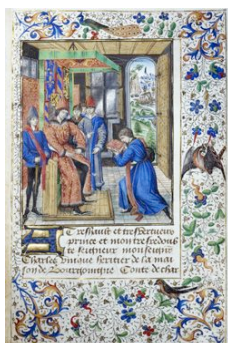 Treshault et tresvertueux
prince et mon tresredoubte
seigneur monseigneur
Charles unique heritier de sa mai
son de Bourgoingne Conte de char